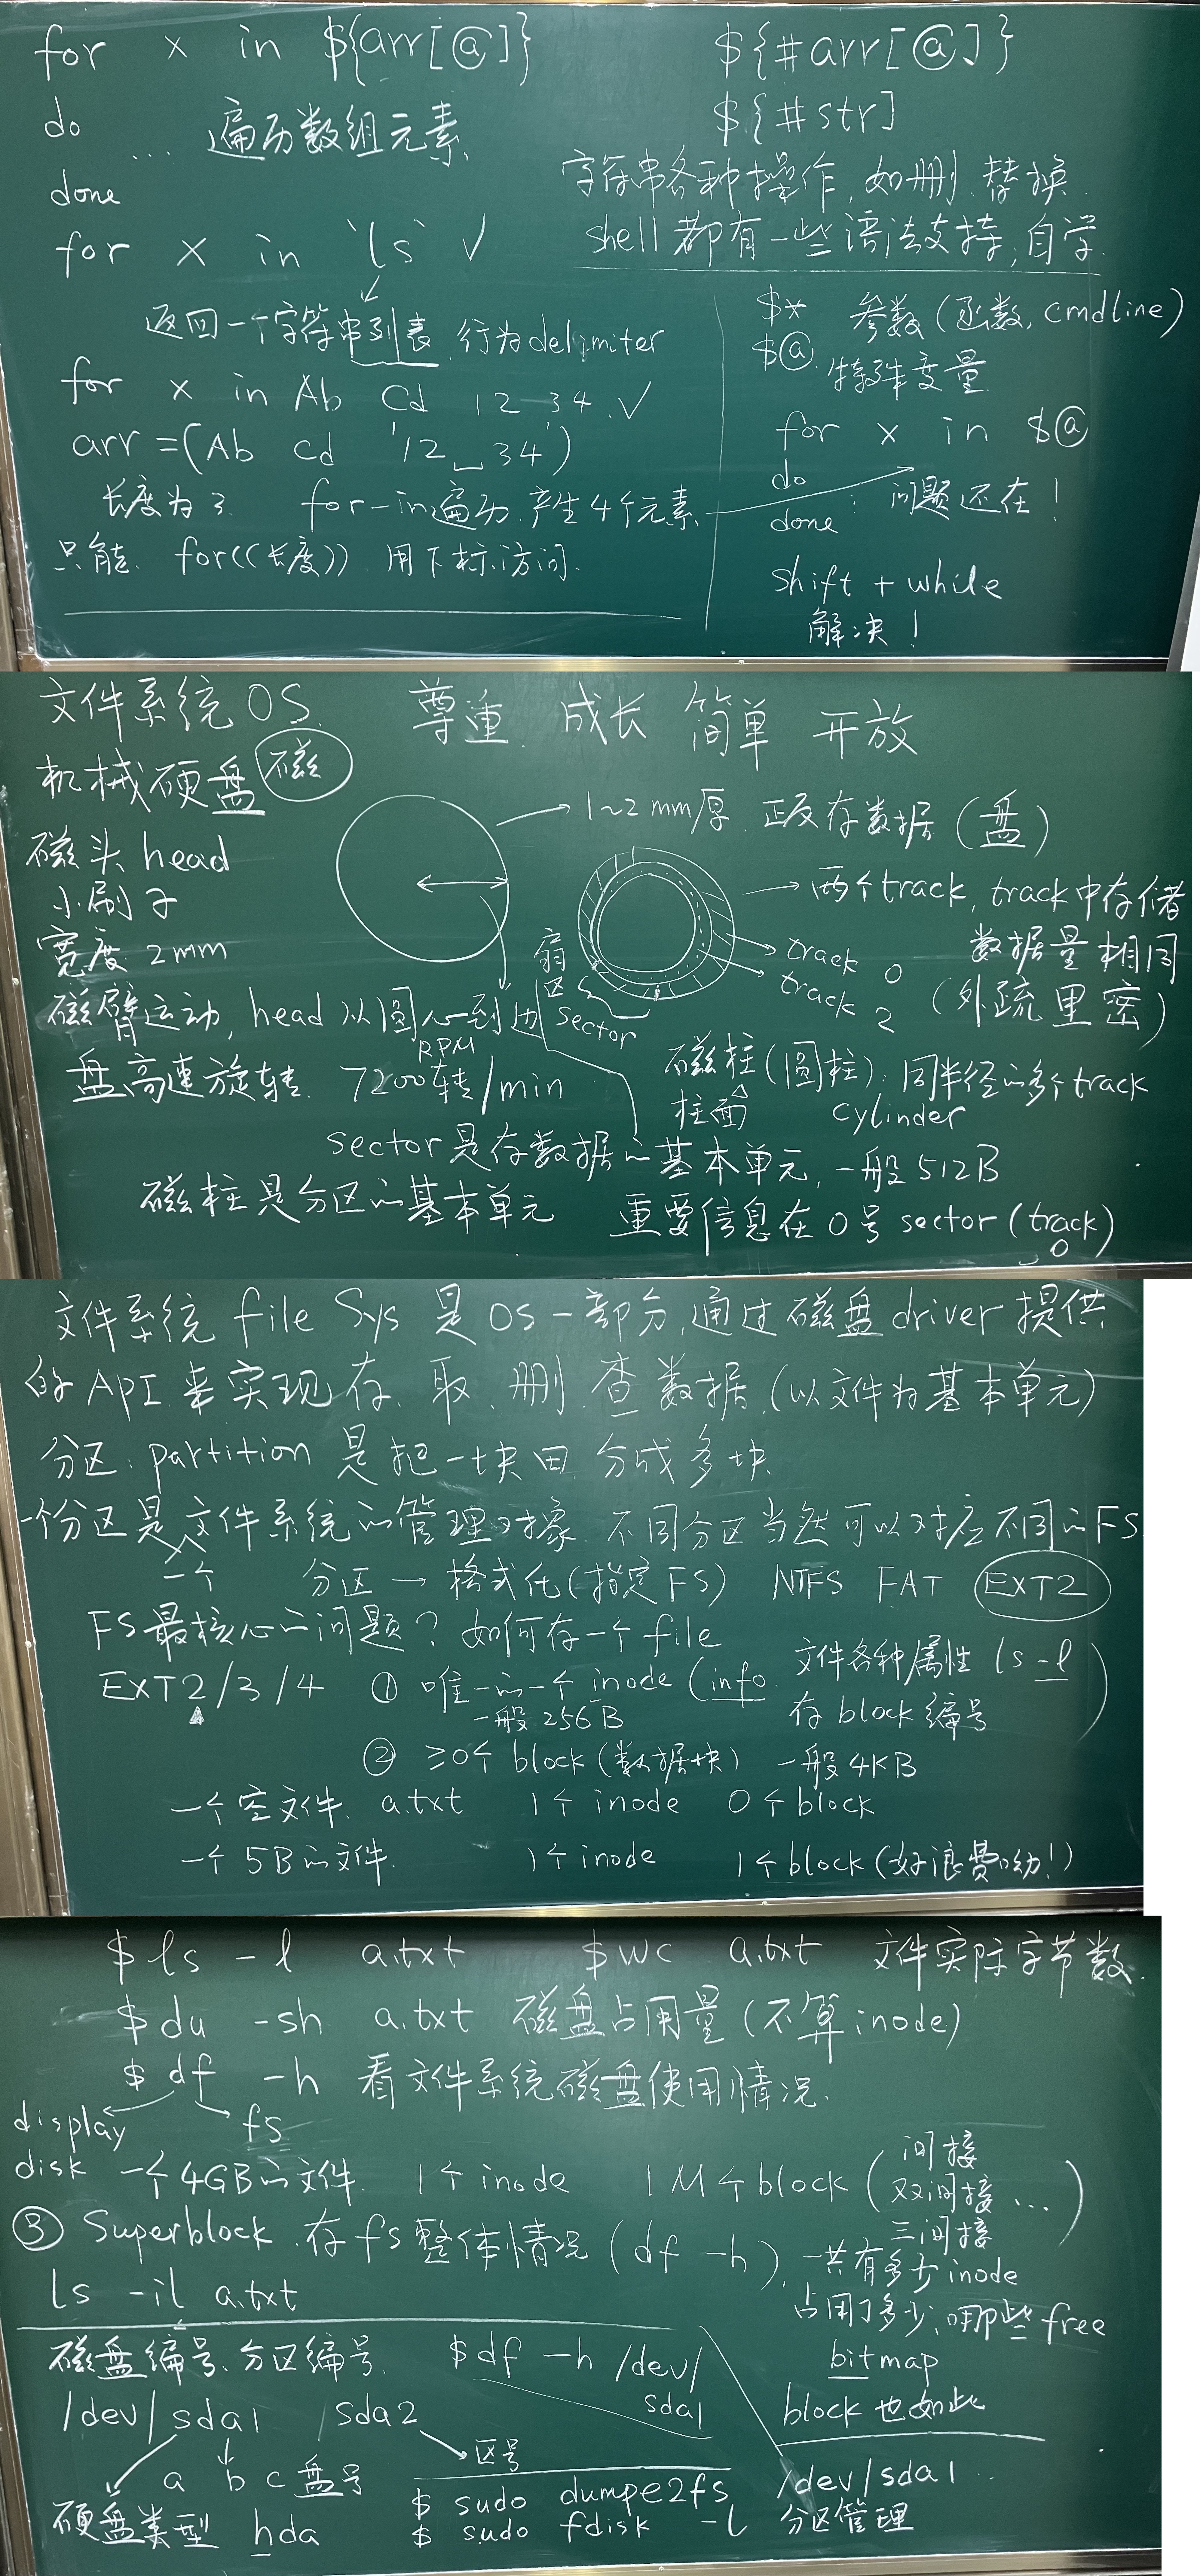 for x in ${arr[@]}
do
... 遍历数组元素
done
for x in `ls` ✓
返回一个字符串列表, 行为delimiter
for x in Ab Cd '12 34' ✓
arr=(Ab cd '12␣34')
长度为3. for-in遍历, 产生4个元素
只能 for((长度)) 用下标访问.
${#arr[@]}
${#str]
字符串各种操作, 如删、替换
shell都有一些语法支持, 自学.
$* 参数(函数, cmdline)
$@ 特殊变量
for x in $@
do
: 问题还在!
done
shift + while
解决!
文件系统 OS. 尊重 成长 简单 开放
机械硬盘 磁
磁头 head
小刷子
宽度 2mm
磁臂运动, head 从圆心到边
盘高速旋转. 7200转/min
RPM
1~2mm厚. 正反存数据(盘)
两个track, track中存储
数据量相同
(外疏里密)
track 0
track 2
扇区 sector
磁柱(圆柱): 同半径的多个track
柱面 cylinder
sector是存数据的基本单元, 一般512B
磁柱是分区的基本单元 重要信息在0号sector(track 0)
文件系统 file Sys 是 OS 一部分, 通过磁盘driver提供
的API来实现存、取、删、查数据(以文件为基本单元)
分区: partition 是把一块田 分成多块
一个分区是一个文件系统的管理对象. 不同分区当然可以对应不同的FS.
分区→格式化(指定FS) NTFS FAT EXT2
FS最核心的问题? 如何存一个file
EXT2/3/4 ① 唯一的一个inode (info. 文件各种属性 ls -l
一般256B 存block编号)
② ≥0个block(数据块) 一般4KB
一个空文件. a.txt 1个inode 0个block
一个5B的文件. 1个inode 1个block(好浪费呦!)
$ ls -l a.txt $ wc a.txt 文件实际字节数.
$ du -sh a.txt 磁盘占用量(不算inode)
$ df -h 看文件系统磁盘使用情况.
display fs
disk 一个4GB的文件. 1个inode 1M个block (间接 双间接 三间接 ...)
③ Superblock. 存fs整体情况(df -h), 一共有多少inode
占用了多少, 哪些free
bitmap
block也如此
ls -il a.txt
磁盘编号、分区编号. $ df -h /dev/sda1
/dev/sda1 sda2
区号
a b c 盘号
硬盘类型 hda
$ sudo dumpe2fs /dev/sda1 ..
$ sudo fdisk -l 分区管理